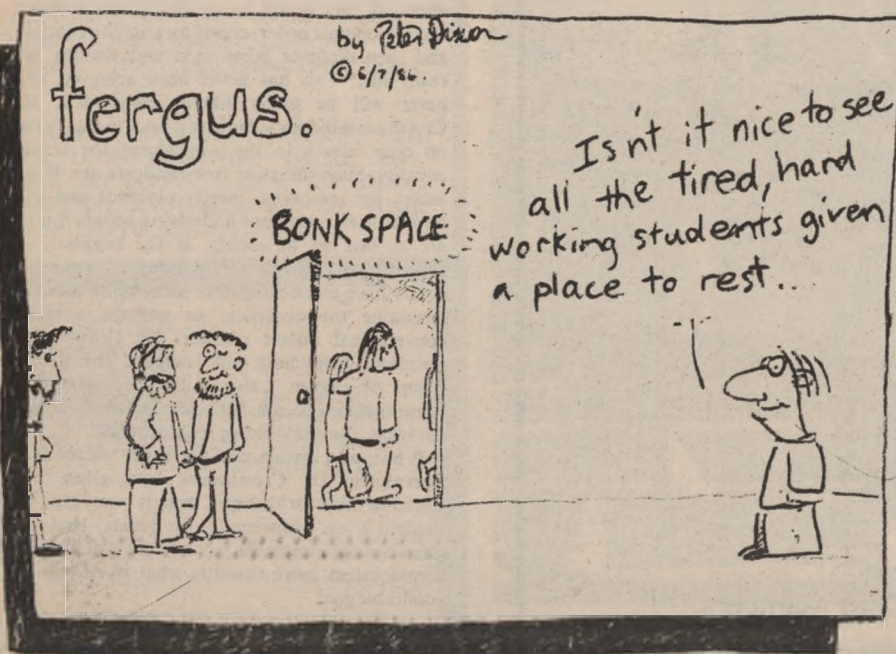 fergus.
by Peter Dixon
© 6/7/86.
BONK SPACE
Isn't it nice to see
all the tired, hard
working students given
a place to rest..